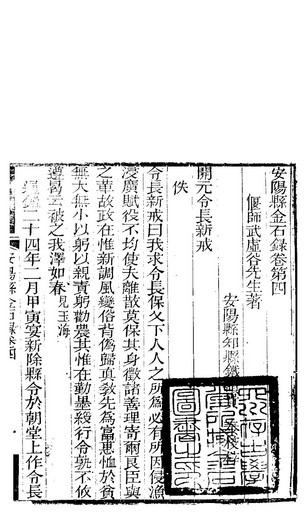 安陽縣金石錄卷第四
偃師武虛谷先生著
安陽縣知縣
開元令長新戒
佚
令長新戒曰我求令長保乂下人人之所為必有所因侵漁
浸廣賦役不均使夫離散莫保其身徵諸善理寄爾良臣與
之革故政在惟新調風變俗背偽歸真教先為富惠恤於貧
無大無小以躬以親責躬勸農其惟在勤墨綬行令孰不攸
遵曷云被之我澤如春見玉海
二十四年二月甲寅宴新除縣令於朝堂上作令長
安陽縣金石錄卷四